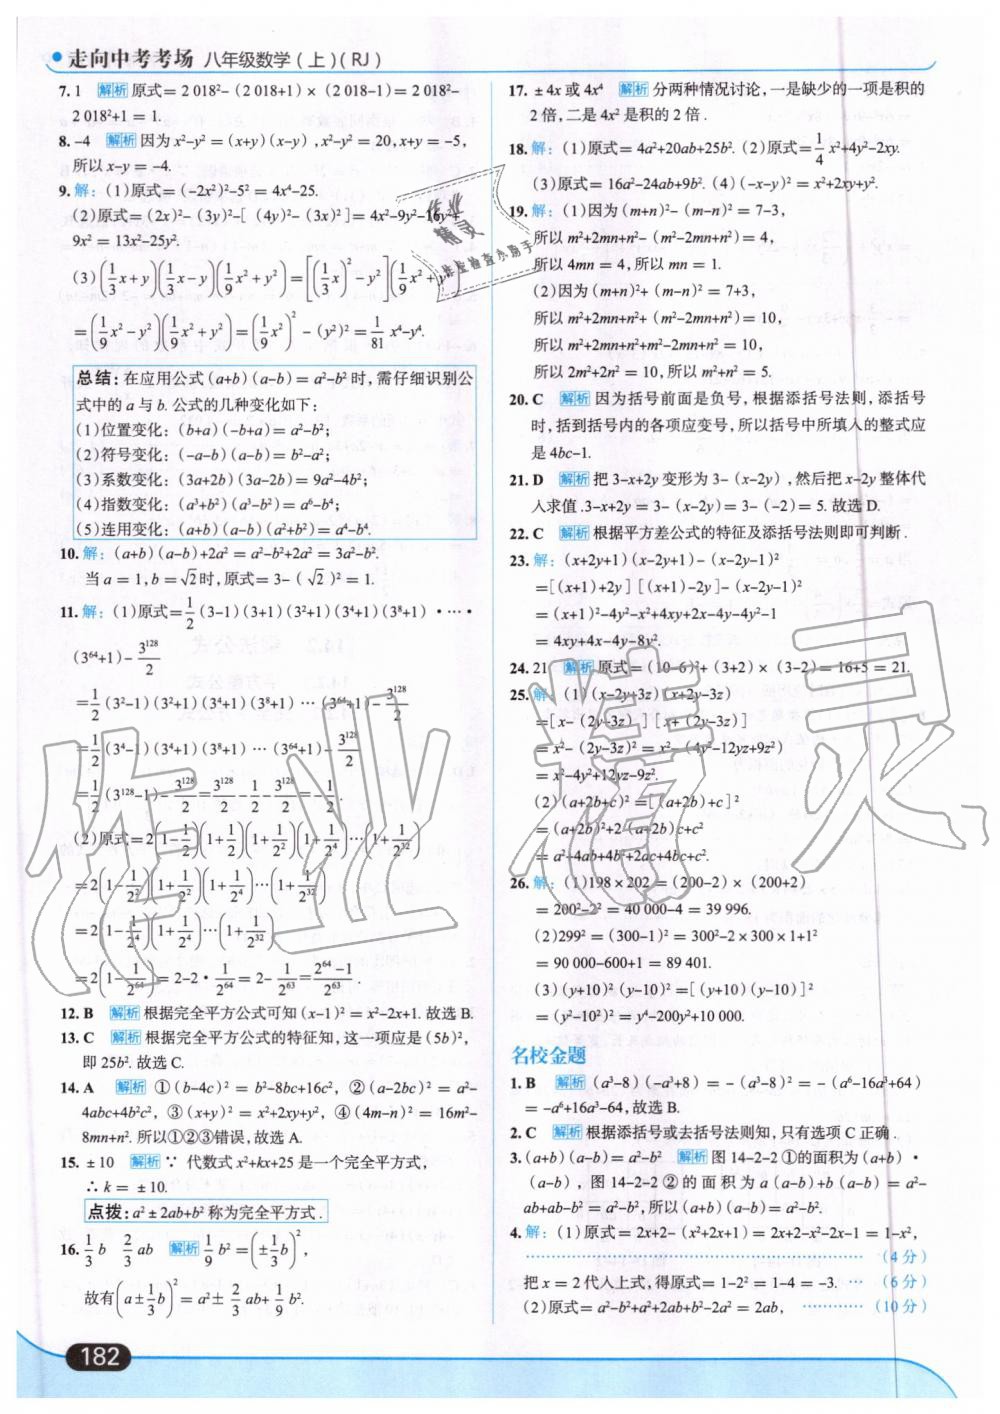 走向中考考场 八年级数学(上)(RJ)
7. 1 解析 原式=2 018²-(2 018+1)×(2 018-1)=2 018²-
2 018²+1=1.
8. -4 解析 因为x²-y²=(x+y)(x-y),x²-y²=20,x+y=-5,
所以x-y=-4.
9. 解:(1)原式=(-2x²)²-5²=4x⁴-25.
(2)原式=(2x)²-(3y)²-[(4y)²-(3x)²]=4x²-9y²-16y²+
9x²=13x²-25y².
(3)(1/3x+y)(1/3x-y)(1/9x²+y²)=[(1/3x)²-y²](1/9x²+y²)
=(1/9x²-y²)(1/9x²+y²)=(1/9x²)²-(y²)²=1/81x⁴-y⁴.
总结:在应用公式(a+b)(a-b)=a²-b²时,需仔细识别公
式中的a与b.公式的几种变化如下:
(1)位置变化:(b+a)(-b+a)=a²-b²;
(2)符号变化:(-a-b)(a-b)=b²-a²;
(3)系数变化:(3a+2b)(3a-2b)=9a²-4b²;
(4)指数变化:(a³+b²)(a³-b²)=a⁶-b⁴;
(5)连用变化:(a+b)(a-b)(a²+b²)=a⁴-b⁴.
10. 解:(a+b)(a-b)+2a²=a²-b²+2a²=3a²-b².
当a=1,b=√2时,原式=3-(√2)²=1.
11. 解:(1)原式=1/2(3-1)(3+1)(3²+1)(3⁴+1)(3⁸+1)·…·
(3⁶⁴+1)-3¹²⁸/2
=1/2(3²-1)(3²+1)(3⁴+1)(3⁸+1)…(3⁶⁴+1)-3¹²⁸/2
=1/2(3⁴-1)(3⁴+1)(3⁸+1)…(3⁶⁴+1)-3¹²⁸/2
=1/2(3¹²⁸-1)-3¹²⁸/2=3¹²⁸/2-1/2-3¹²⁸/2=-1/2.
(2)原式=2(1-1/2)(1+1/2)(1+1/2²)(1+1/2⁴)…(1+1/2³²)
=2(1-1/2²)(1+1/2²)(1+1/2⁴)…(1+1/2³²)
=2(1-1/2⁴)(1+1/2⁴)…(1+1/2³²)
=2(1-1/2⁶⁴)=2-2·1/2⁶⁴=2-1/2⁶³=(2⁶⁴-1)/2⁶³.
12. B 解析 根据完全平方公式可知(x-1)²=x²-2x+1.故选B.
13. C 解析 根据完全平方公式的特征知,这一项应是(5b)²,
即25b².故选C.
14. A 解析 ①(b-4c)²=b²-8bc+16c²,②(a-2bc)²=a²-
4abc+4b²c²,③(x+y)²=x²+2xy+y²,④(4m-n)²=16m²-
8mn+n².所以①②③错误,故选A.
15. ±10 解析 ∵ 代数式x²+kx+25是一个完全平方式,
∴k=±10.
点拨:a²±2ab+b²称为完全平方式.
16. 1/3b 2/3ab 解析 1/9b²=(±1/3b)²,
故有(a±1/3b)²=a²±2/3ab+1/9b².
182
17. ±4x或4x⁴ 解析 分两种情况讨论,一是缺少的一项是积的
2倍,二是4x²是积的2倍.
18. 解:(1)原式=4a²+20ab+25b².(2)原式=1/4x²+4y²-2xy.
(3)原式=16a²-24ab+9b².(4)(-x-y)²=x²+2xy+y².
19. 解:(1)因为(m+n)²-(m-n)²=7-3,
所以m²+2mn+n²-(m²-2mn+n²)=4,
所以4mn=4,所以mn=1.
(2)因为(m+n)²+(m-n)²=7+3,
所以m²+2mn+n²+(m²-2mn+n²)=10,
所以m²+2mn+n²+m²-2mn+n²=10,
所以2m²+2n²=10,所以m²+n²=5.
20. C 解析 因为括号前面是负号,根据添括号法则,添括号
时,括到括号内的各项应变号,所以括号中所填入的整式应
是4bc-1.
21. D 解析 把3-x+2y变形为3-(x-2y),然后把x-2y整体代
入求值.3-x+2y=3-(x-2y)=3-(-2)=5.故选D.
22. C 解析 根据平方差公式的特征及添括号法则即可判断.
23. 解:(x+2y+1)(x-2y+1)-(x-2y-1)²
=[(x+1)+2y][(x+1)-2y]-(x-2y-1)²
=(x+1)²-4y²-x²+4xy+2x-4y-4y²-1
=4xy+4x-4y-8y².
24. 21 解析 原式=(10-6)²+(3+2)×(3-2)=16+5=21.
25. 解:(1)(x-2y+3z)(x+2y-3z)
=[x-(2y-3z)][x+(2y-3z)]
=x²-(2y-3z)²=x²-(4y²-12yz+9z²)
=x²-4y²+12yz-9z².
(2)(a+2b+c)²=[(a+2b)+c]²
=(a+2b)²+2(a+2b)c+c²
=a²+4ab+4b²+2ac+4bc+c².
26. 解:(1)198×202=(200-2)×(200+2)
=200²-2²=40 000-4=39 996.
(2)299²=(300-1)²=300²-2×300×1+1²
=90 000-600+1=89 401.
(3)(y+10)²(y-10)²=[(y+10)(y-10)]²
=(y²-10²)²=y⁴-200y²+10 000.
名校金题
1. B 解析 (a³-8)(-a³+8)=-(a³-8)²=-(a⁶-16a³+64)
=-a⁶+16a³-64,故选B.
2. C 解析 根据添括号或去括号法则知,只有选项C正确.
3. (a+b)(a-b)=a²-b² 解析 图14-2-2①的面积为(a+b)·
(a-b),图14-2-2②的面积为a(a-b)+b(a-b)=a²-
ab+ab-b²=a²-b²,所以(a+b)(a-b)=a²-b².
4. 解:(1)原式=2x+2-(x²+2x+1)=2x+2-x²-2x-1=1-x²,
…………(4分)
把x=2代入上式,得原式=1-2²=1-4=-3.…(6分)
(2)原式=a²-b²+a²+2ab+b²-2a²=2ab,…………(10分)
作业
精灵
作业检查小助手
作业精灵